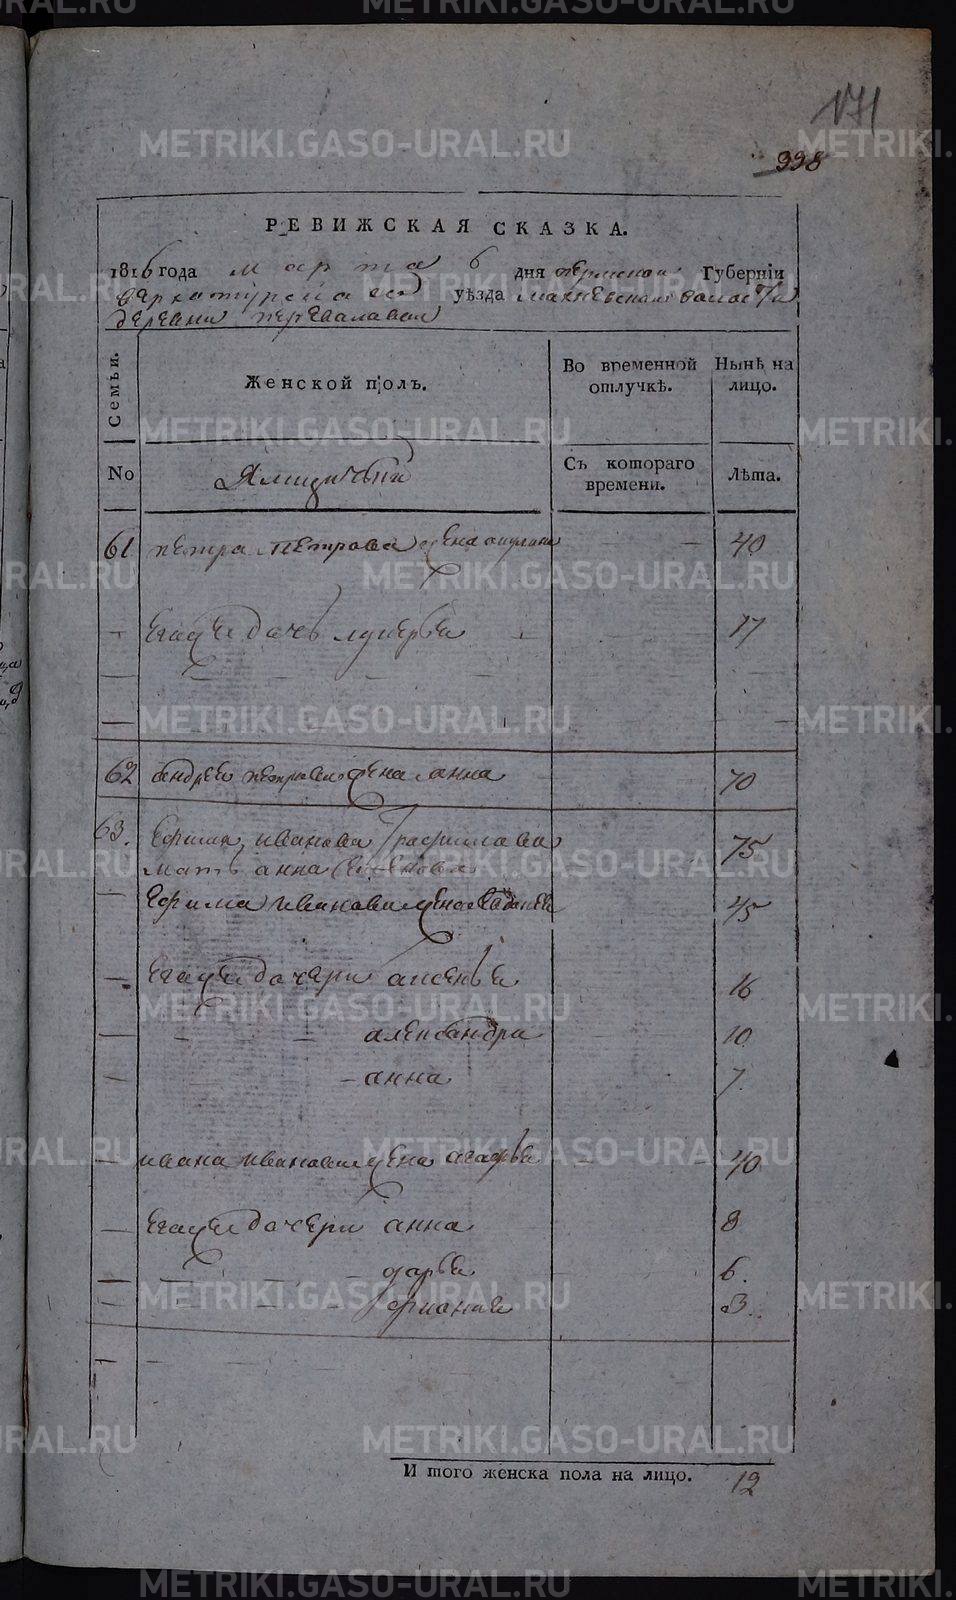 171
998
РЕВИЖСКАЯ СКАЗКА.
1816 года марта 6 дня пермской Губерніи
верхотурскаго уѣзда махневской волости
деревни перевалавой
Семьи.
Женской полъ.
Во временной отлучкѣ.
Нынѣ на лицо.
No
Съ котораго времени.
Лѣта.
61 петра петрова жена акулина 40
егаже дочь лукерья 17
62 андрея петрова жена анна 70
63. Ефима иванова
мать анна 75
Ефима иванова жена 45
егаже дочери аксенья 16
александра 10
анна 7
ивана иванова жена агафья 40
егаже дочери анна 8
дарья 6.
3
И того женска пола на лицо. 12
METRIKI.GASO-URAL.RU